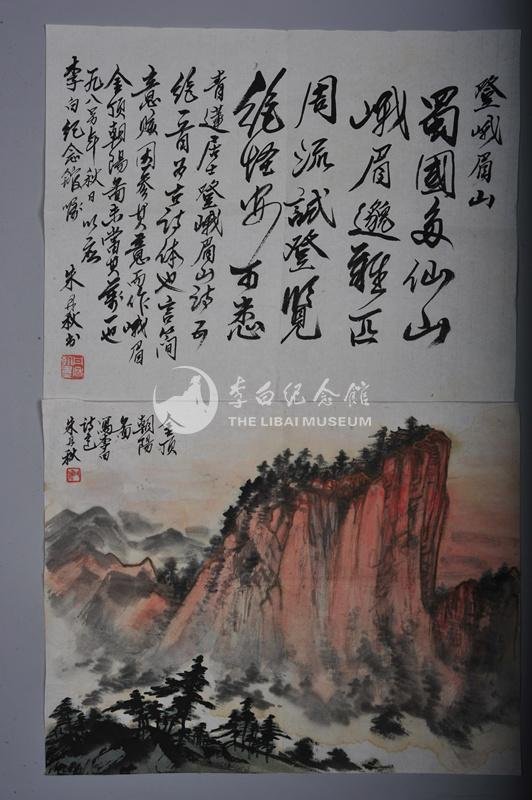 登峨眉山
蜀國多仙山
峨眉邈難匹
周流試登覽
絕怪安可悉
青蓮居士登峨眉山詩五
絕一首乃古詩体也言簡
意賅因参其意而作峨眉
金頂朝陽圖未當其萬一也
一九八年秋日以應
李白紀念館囑
朱秋书
金頂
朝陽
圖
寫李白
詩意
朱秋
李白纪念館
THE LIBAI MUSEUM